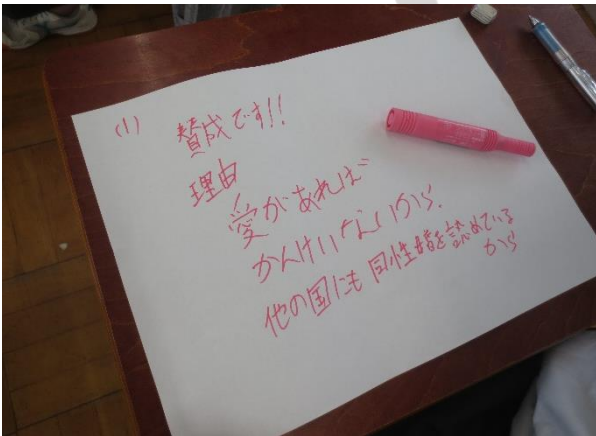 (1) 賛成です!!
理由
愛があれば
かんけいないから.
他の国にも同性婚を認めている
から